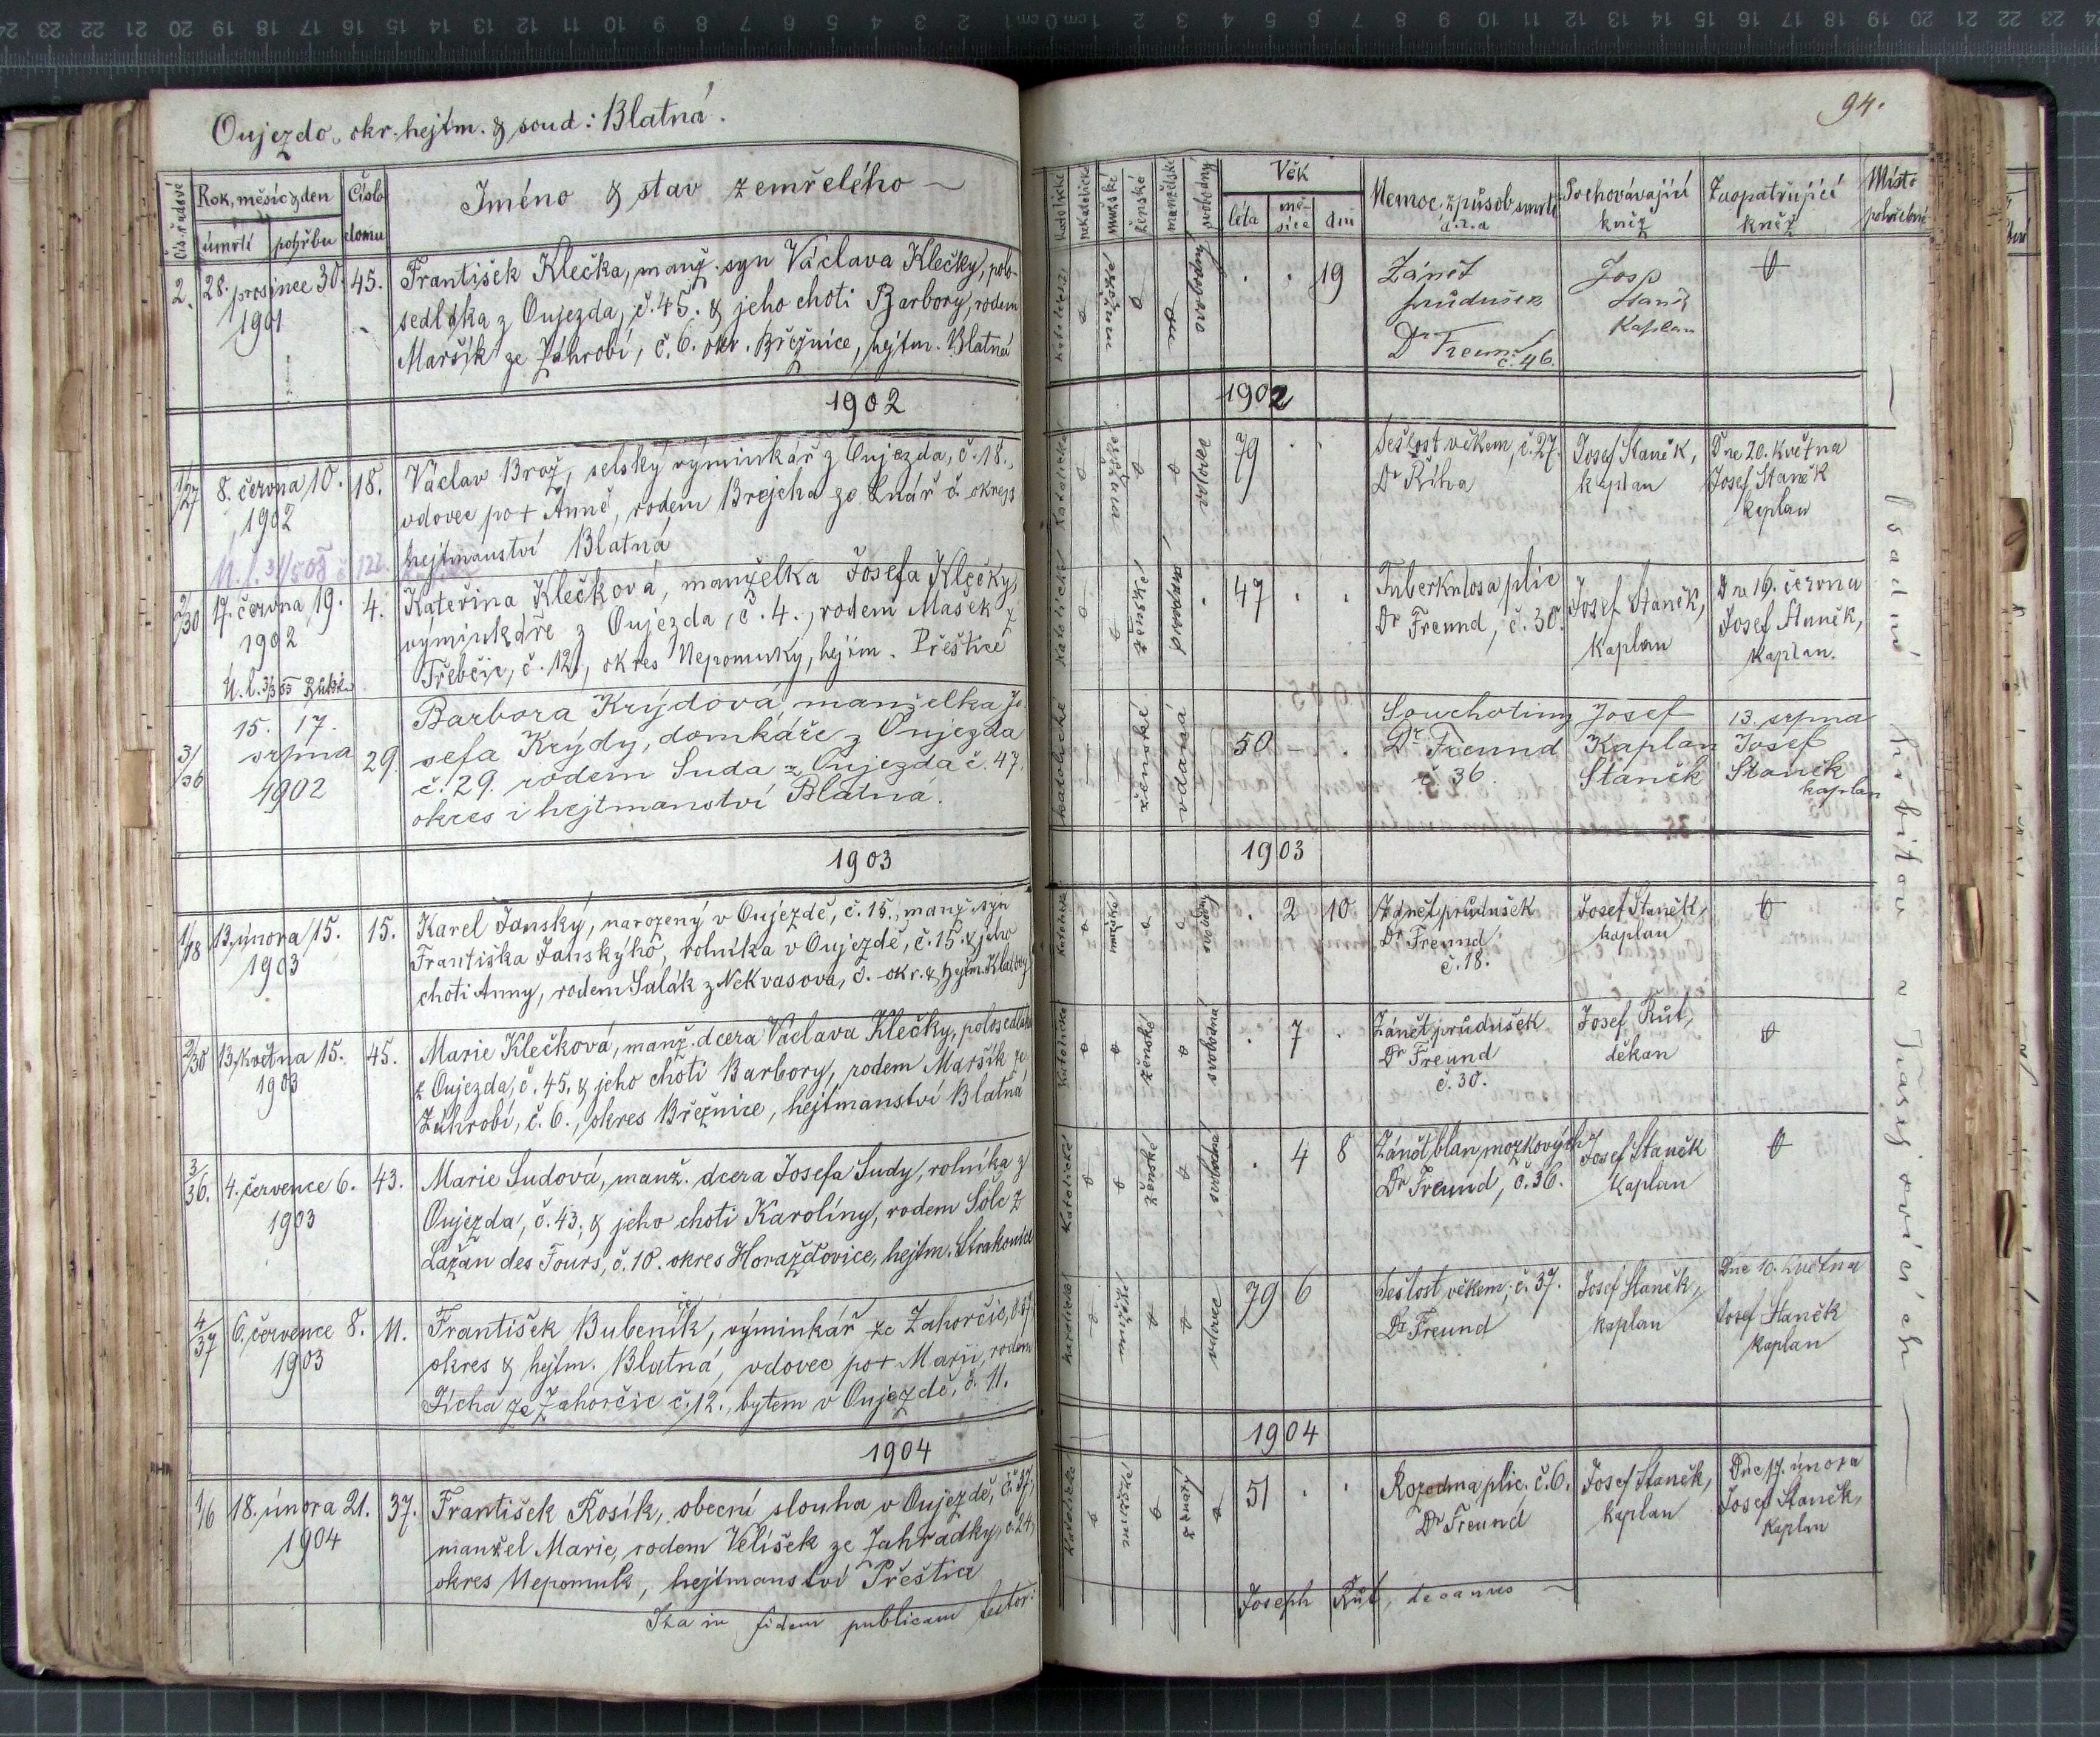 Oujezdo, okr. hejtm. & soud: Blatná.
Čís. řadové
Rok, měsíc & den
úmrtí
pohřbu
Číslo
domu
Jméno & stav zemřelého
2.
28. prosince 30.
1901
45.
František Klečka, manž. syn Václava Klečky, polo-
sedláka z Oujezda, č. 45. & jeho choti Barbory, rodem
Maršík ze Záhrobí, č. 6. okr. Březnice, hejtm. Blatná
1902
1/27
8. června 10.
1902
18.
Václav Brož, selský výminkář z Oujezda, č. 18.,
vdovec po + Anně, rodem Brejcha ze Lnář č. okres
hejtmanství Blatná
2/30
17. června 19.
1902
4.
Kateřina Klečková, manželka Josefa Klečky,
výminkáře z Oujezda, č. 4., rodem Mašek z
Třebčic, č. 12., okres Nepomuky, hejtm. Přeštice
3/36
15. 17.
srpna
1902
29.
Barbora Krýdová manželka Jo
sefa Krýdy, domkáře z Oujezda
č. 29. rodem Suda z Oujezda č. 47.
okres i hejtmanství Blatná.
1903
1/18
13. února 15.
1903
15.
Karel Janský, narozený v Oujezdě, č. 15., manž. syn
Františka Janskýho, rolníka v Oujezdě, č. 15. & jeho
choti Anny, rodem Salák z Nekvasova, č. - okr. & hejtm. Klatovy
2/30
13. května 15.
1903
45.
Marie Klečková, manž. dcera Václava Klečky, polosedláka
z Oujezda, č. 45. & jeho choti Barbory, rodem Maršík ze
Záhrobí, č. 6., okres Březnice, hejtmanství Blatná
3/36.
4. července 6.
1903
43.
Marie Sudová, manž. dcera Josefa Sudy, rolníka z
Oujezda, č. 43. & jeho choti Karolíny, rodem Šolc z
Lažan des Fours, č. 10. okres Horažďovice, hejtm. Strakonice
4/37
6. července 8.
1903
11.
František Bubeník, výminkář ze Zahorčic,
okres & hejtm. Blatná, vdovec po + Marii, rodem
Jícha ze Zahorčic č. 12., bytem v Oujezdě, č. 11.
1904
1/6
18. února 21.
1904
37.
František Kosík, obecní slouha v Oujezdě, č. 37.
manžel Marie, rodem Velíšek ze Zahrádky, č. 24,
okres Nepomuk, hejtmanství Přeštice
Ita in fidem publicam testor:
94.
katolické
nekatolické
mužské
ženské
manželské
svobodný
Věk
léta
měsíce
dní
Nemoc & způsob smrti
Pochovávající
kněz
Zaopatřující
kněz
Místo
pohřební
katolické
mužské
svobodný
19
Zánět
průdušek
Dr Freund
č. 46.
Josp
Staněk
Kaplan
1902
katolické
mužské
vdovec
79
Sešlost věkem, č. 27.
Dr Říha
Josef Staněk,
kaplan
Dne 20. května
Josef Staněk
kaplan
katolické
ženské
provdaná
47
Tuberkulosa plic
Dr Freund, č. 30.
Josef Staněk,
kaplan
Dne 19. června
Josef Staněk,
kaplan.
katolické
ženské
vdaná
50
Souchotiny
Dr Freund
č 36.
Josef
Kaplan
Staněk
13. srpna
Josef
Staněk
kaplan
1903
katolické
mužské
svobodný
2
10
Zánět průdušek
Dr Freund
č. 18.
Josef Staněk,
kaplan
katolické
ženské
svobodná
7
Zánět průdušek
Dr Freund
č. 30.
Josef Růt,
děkan
katolické
ženské
svobodná
4
8
Zánět blan mozkových
Dr Freund, č. 36.
Josef Staněk
kaplan
katolické
mužské
vdovec
79
6
Sešlost věkem, č. 37.
Dr Freund
Josef Staněk,
kaplan
Dne 10. května
Josef Staněk
kaplan
1904
katolické
mužské
ženatý
51
Rozedma plic. č. 6.
Dr Freund
Josef Staněk,
kaplan
Dne 17. února
Josef Staněk,
kaplan
Joseph Růt, decanus